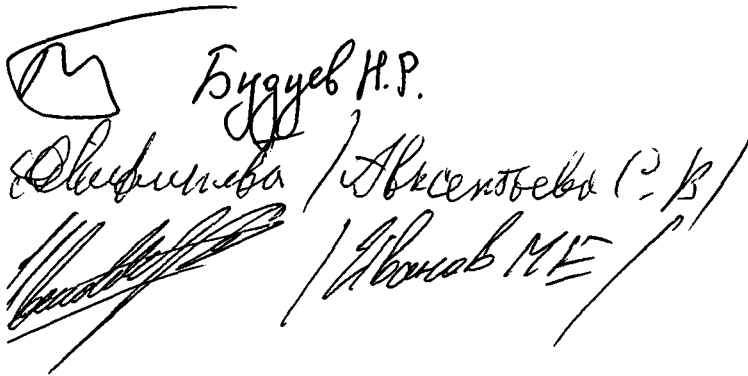 Будуев Н.Р.
/ Авксентьева С.В/
/ Иванов М Е /